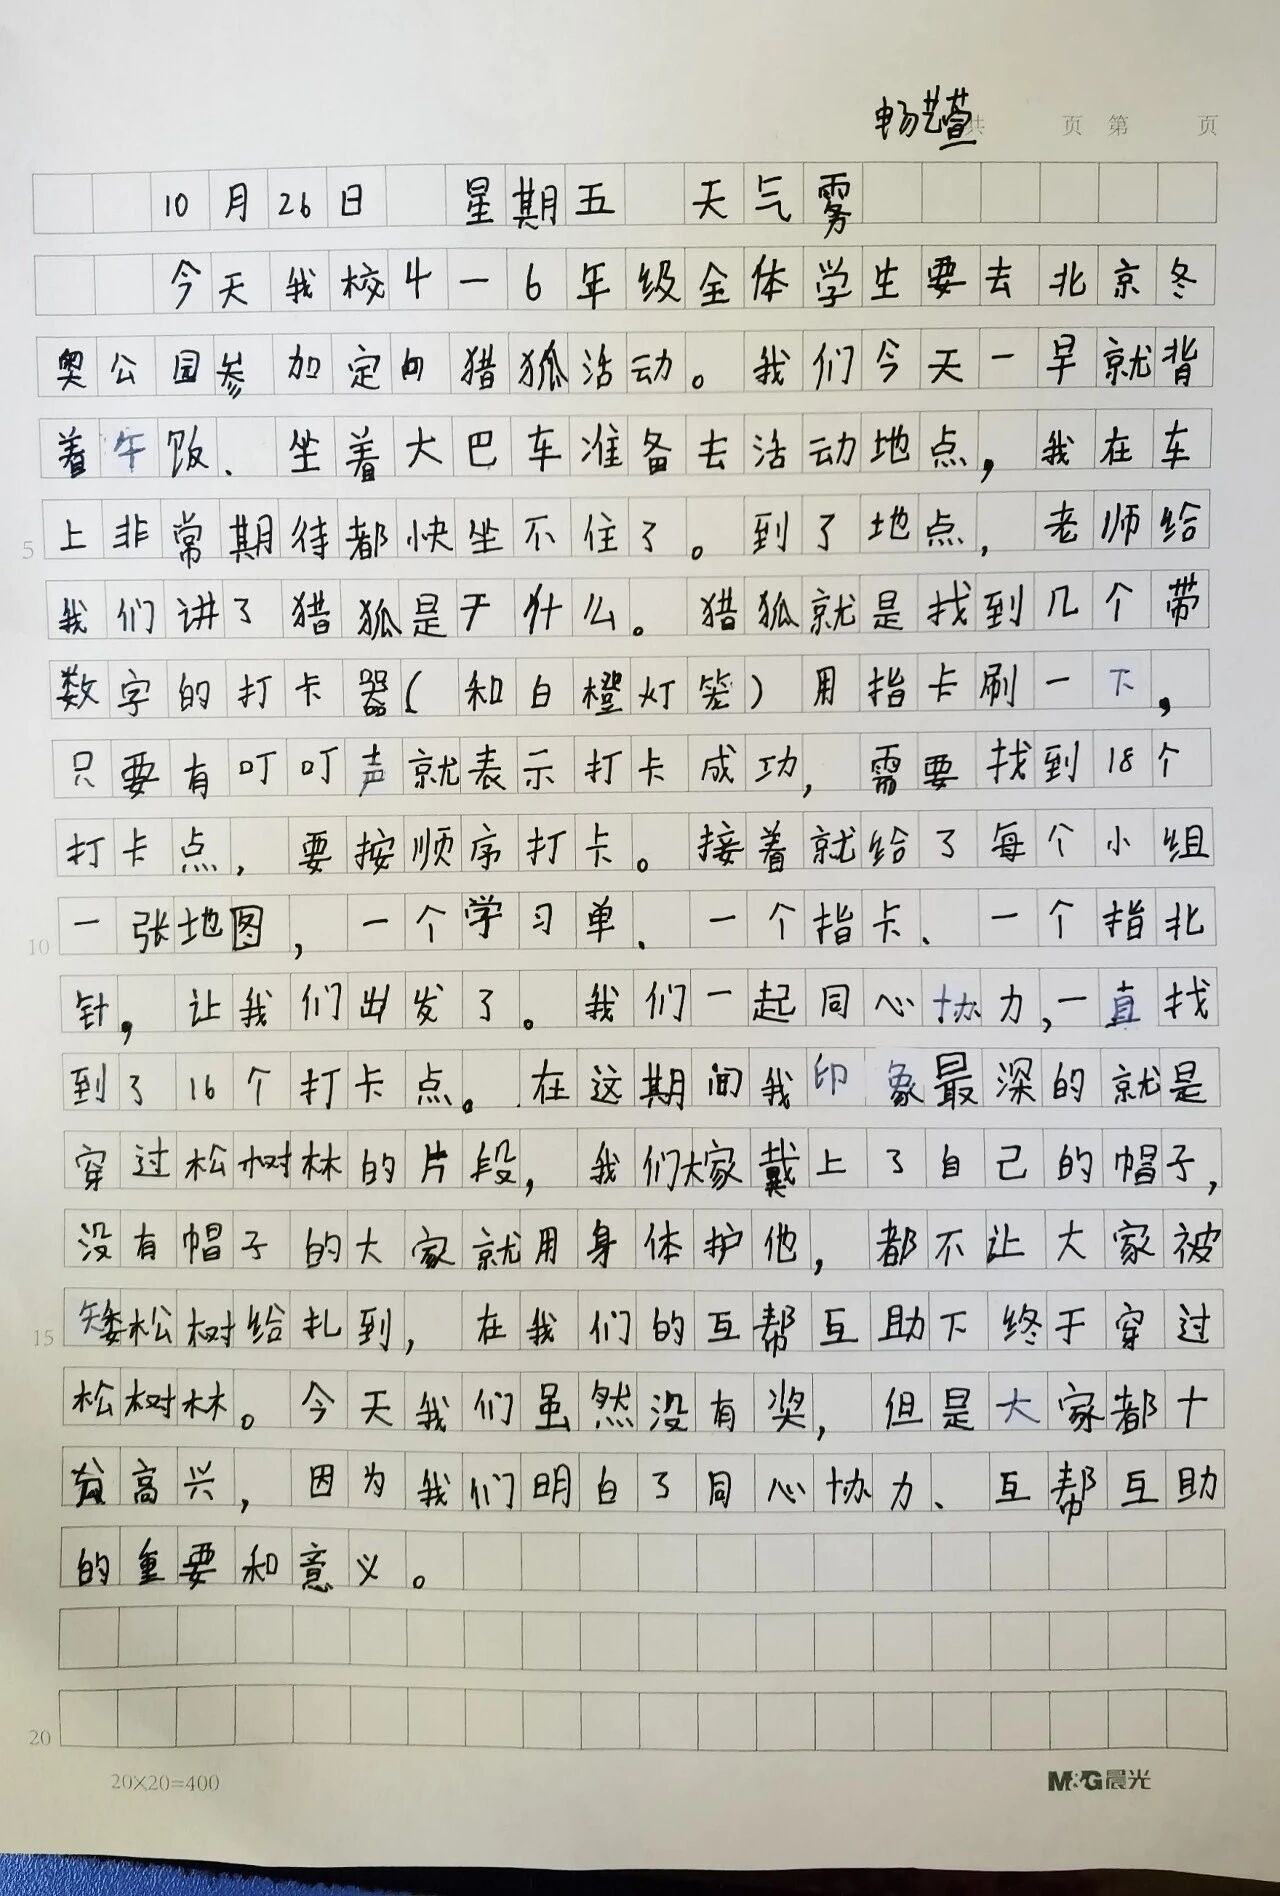 畅艺萱
共 页 第 页
10月26日 星期五 天气雾
今天我校4一6年级全体学生要去北京冬
奥公园参加定向猎狐活动。我们今天一早就背
着午饭、坐着大巴车准备去活动地点，我在车
5 上非常期待都快坐不住了。到了地点，老师给
我们讲了猎狐是干什么。猎狐就是找到几个带
数字的打卡器(和白橙灯笼)用指卡刷一下，
只要有叮叮声就表示打卡成功，需要找到18个
打卡点，要按顺序打卡。接着就给了每个小组
10 一张地图，一个学习单、一个指卡、一个指北
针，让我们出发了。我们一起同心协力，一直找
到了16个打卡点。在这期间我印象最深的就是
穿过松树林的片段，我们大家戴上了自己的帽子，
没有帽子的大家就用身体护他，都不让大家被
15 矮松树给扎到，在我们的互帮互助下终于穿过
松树林。今天我们虽然没有奖，但是大家都十
分高兴，因为我们明白了同心协力、互帮互助
的重要和意义。
20
20×20=400 M&G晨光